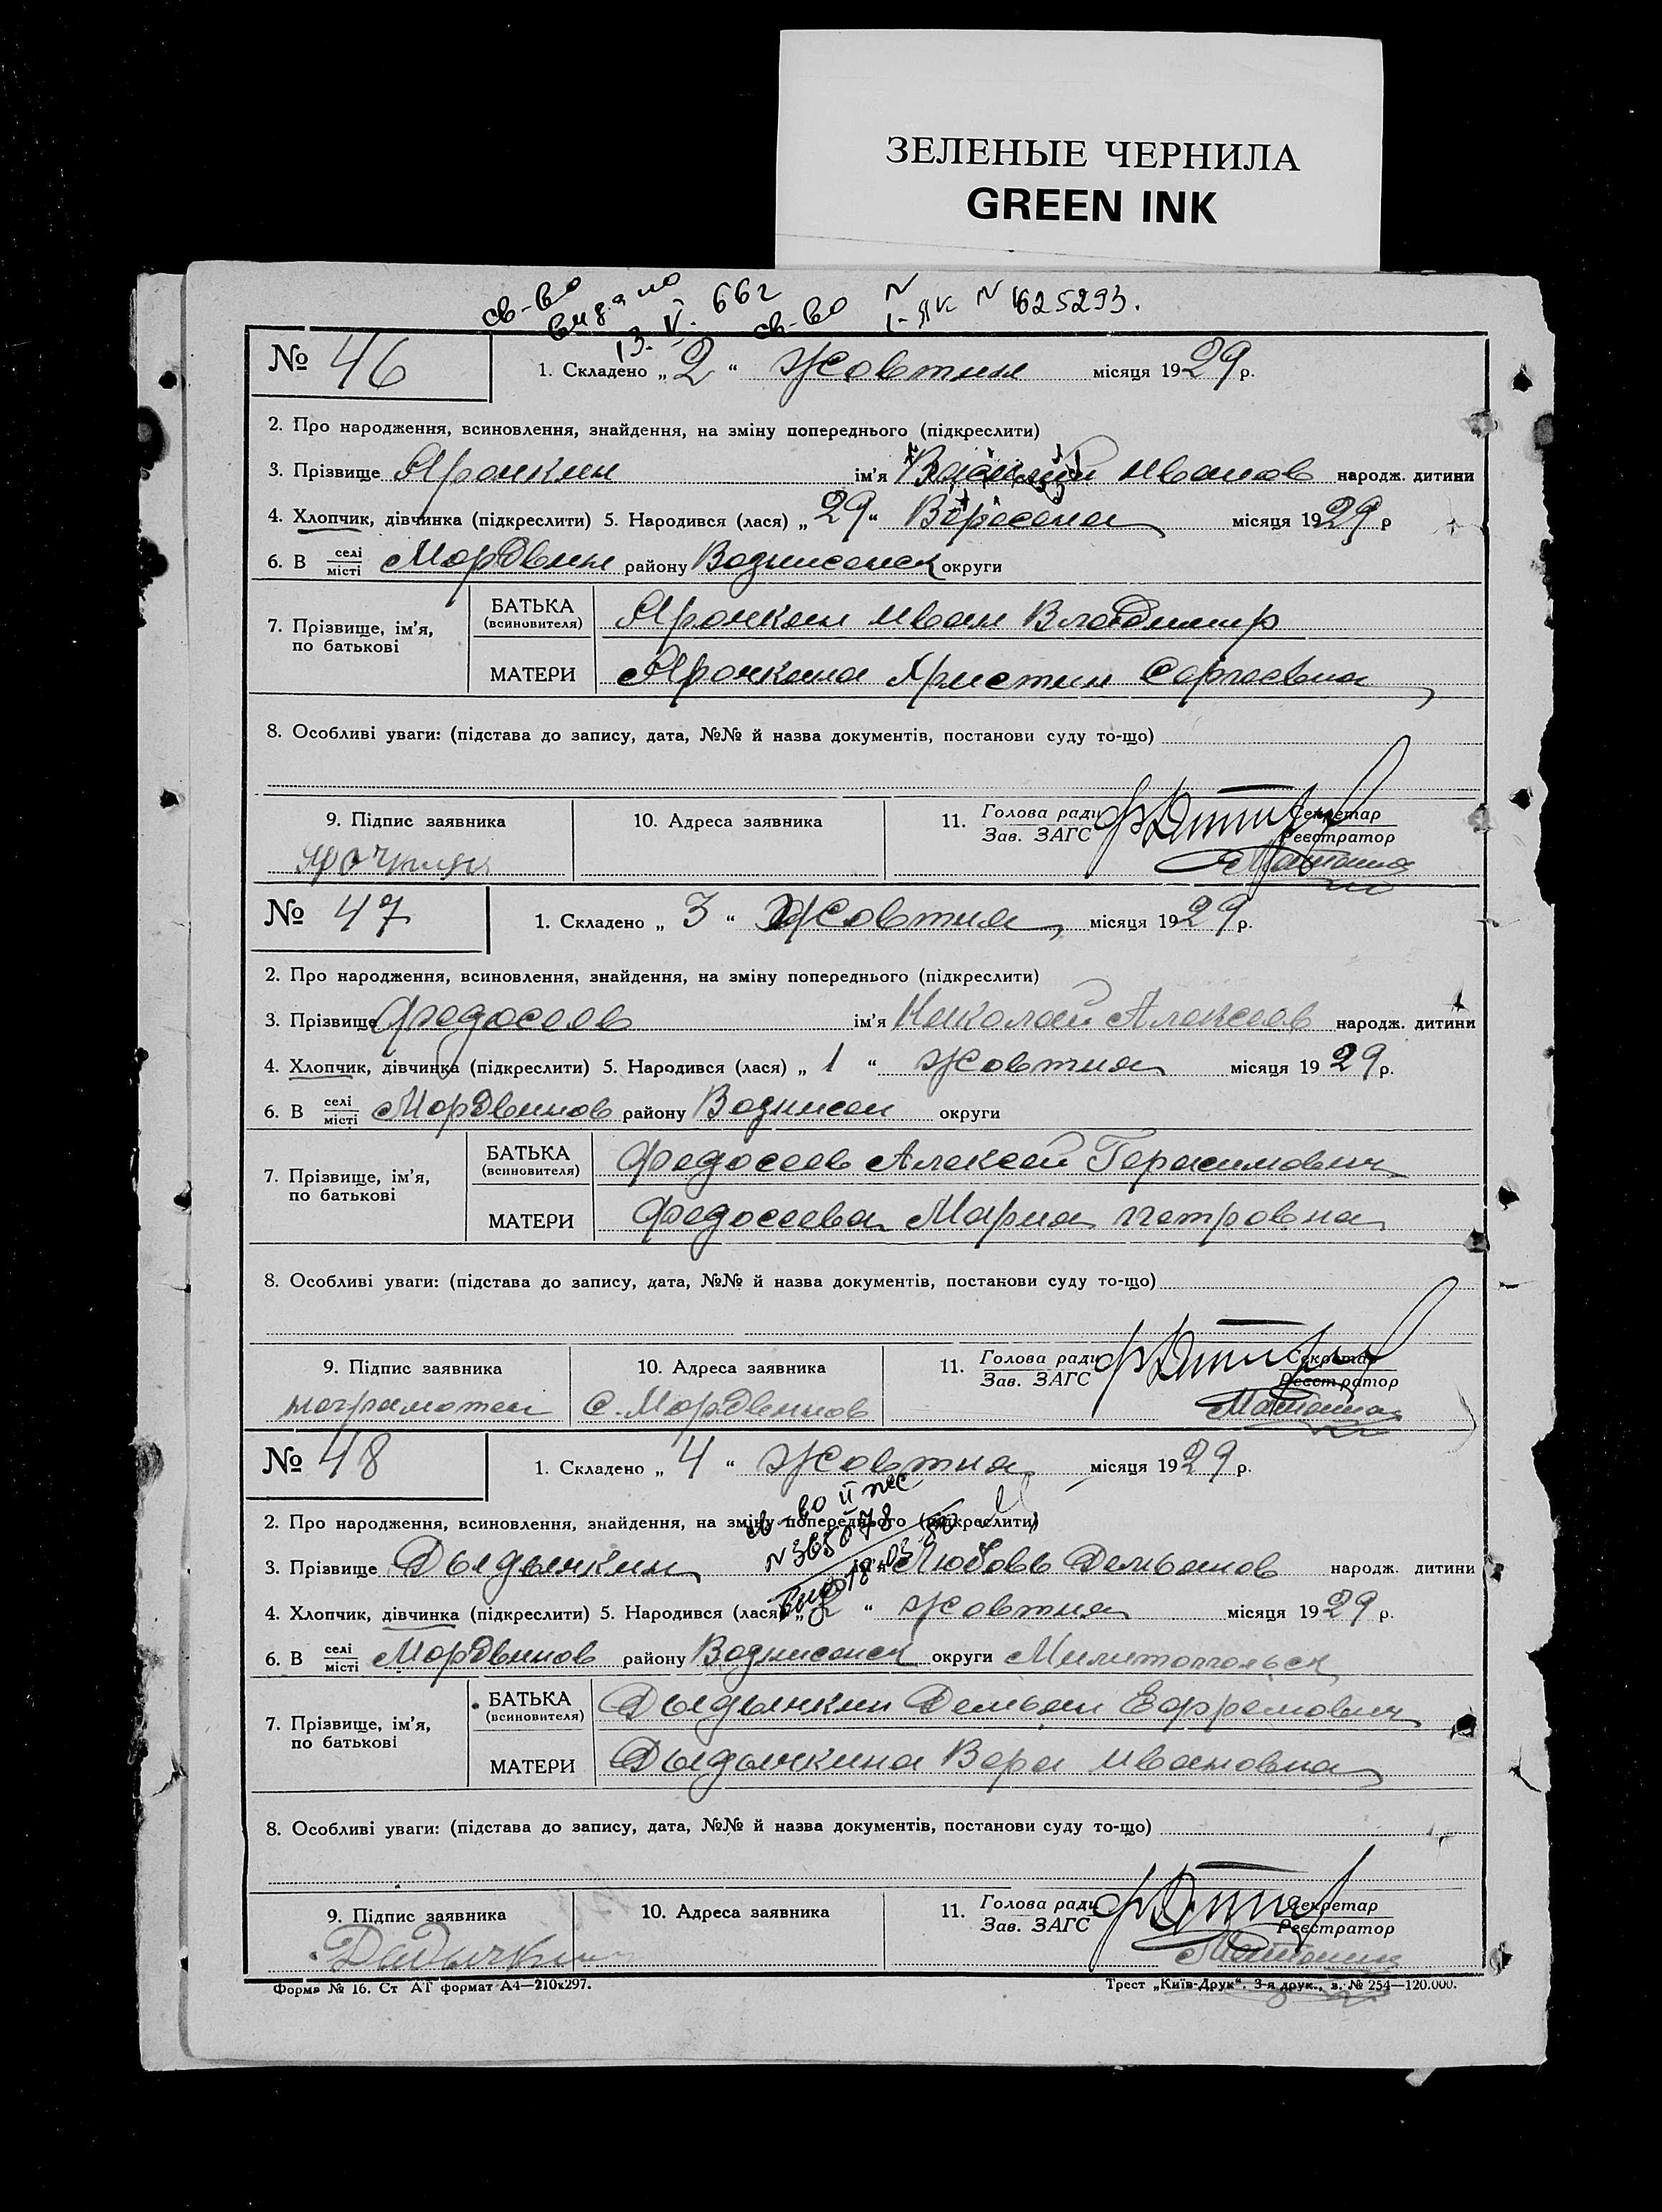 ЗЕЛЕНЫЕ ЧЕРНИЛА
GREEN INK
св-во видано 13.V.66г св-во I-ЯК N 625293.
№ 46 1. Складено „2“ Жовтня місяця 1929 р.
2. Про народження, всиновлення, знайдення, на зміну попереднього (підкреслити)
3. Прізвище Ярочкин ім'я Василий Иванов народж. дитини
4. Хлопчик, дівчинка (підкреслити) 5. Народився (лася) „29“ Вересена місяця 1929 р
6. В селі місті Мордвин району Вознисенск округи
7. Прізвище, ім'я, по батькові
БАТЬКА (всиновителя) Ярочкин Иван Владимир
МАТЕРИ Ярочкина Христин Сергеевна
8. Особливі уваги: (підстава до запису, дата, №№ й назва документів, постанови суду то-що)
9. Підпис заявника 10. Адреса заявника 11. Голова ради Зав. ЗАГС Секретар Реєстратор
№ 47 1. Складено „3“ Жовтня місяця 1929 р.
2. Про народження, всиновлення, знайдення, на зміну попереднього (підкреслити)
3. Прізвище Федосеев ім'я Николай Алексеев народж. дитини
4. Хлопчик, дівчинка (підкреслити) 5. Народився (лася) „1“ Жовтня місяця 1929 р.
6. В селі місті Мордвинов району Вознисен округи
7. Прізвище, ім'я, по батькові
БАТЬКА (всиновителя) Федосеев Алексей Герасимович
МАТЕРИ Федосеева Мария Петровна
8. Особливі уваги: (підстава до запису, дата, №№ й назва документів, постанови суду то-що)
9. Підпис заявника 10. Адреса заявника 11. Голова ради Зав. ЗАГС Секретар Реєстратор
неграмотен С. Мордвинов
№ 48 1. Складено „4“ Жовтня місяця 1929 р.
2. Про народження, всиновлення, знайдення, на зміну попереднього (підкреслити)
св-во II
N 365078
3. Прізвище Дыдычкин ім'я Любовь Демьянов народж. дитини
4. Хлопчик, дівчинка (підкреслити) 5. Народився (лася) „2“ Жовтня місяця 1929 р.
6. В селі місті Мордвинов району Вознисенск округи Милитопольск
7. Прізвище, ім'я, по батькові
БАТЬКА (всиновителя) Дыдычкин Демьян Ефремович
МАТЕРИ Дыдычкина Вера Ивановна
8. Особливі уваги: (підстава до запису, дата, №№ й назва документів, постанови суду то-що)
9. Підпис заявника 10. Адреса заявника 11. Голова ради Зав. ЗАГС Секретар Реєстратор
Форма № 16. Ст АТ формат А4—210x297. Трест „Київ-Друк“. 3-я друк., з. № 254—120.000.